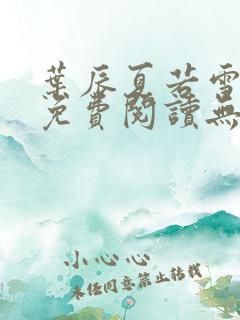 葉辰夏若雪
免費閱讀無
小心心
未經同意禁止轉載